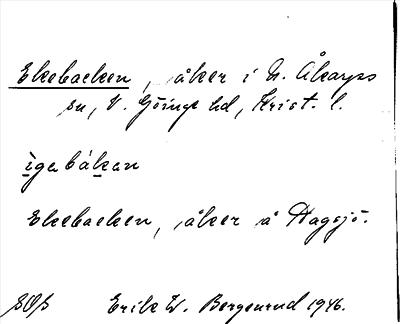 Ekebacken, åker i N. Åkarps
sn, V. Göinge hd, Krist. l.
ìgabákan
Ekebacken, åker å Hagsjö.
SOB Erik W. Bergenrud 1946.